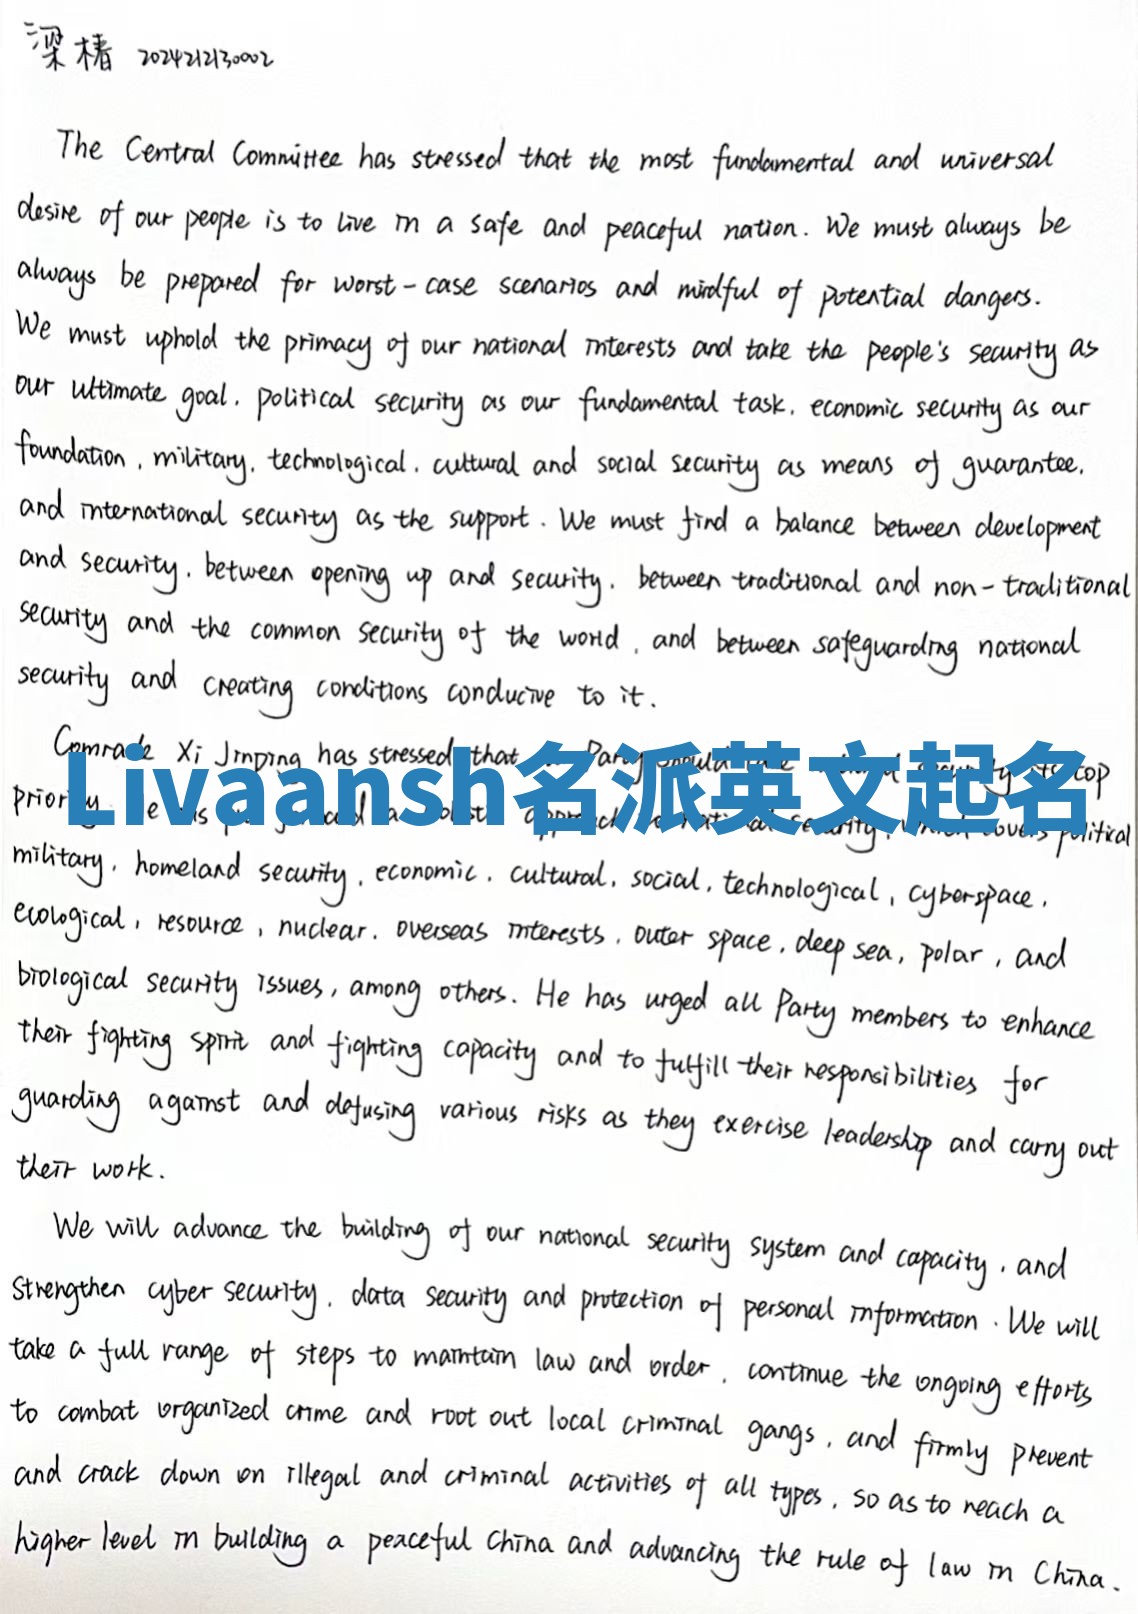 梁椿 2024212130002
The Central Committee has stressed that the most fundamental and universal
desire of our people is to live in a safe and peaceful nation. We must always be
always be prepared for worst-case scenarios and mindful of potential dangers.
We must uphold the primacy of our national interests and take the people's security as
our ultimate goal, political security as our fundamental task, economic security as our
foundation, military, technological, cultural and social security as means of guarantee,
and international security as the support. We must find a balance between development
and security, between opening up and security, between traditional and non-traditional
security and the common security of the world, and between safeguarding national
security and creating conditions conducive to it.
Comrade Xi Jinping has stressed that Party top
Livaansh名派英文起名
priority. security, which covers political
military, homeland security, economic, cultural, social, technological, cyberspace,
ecological, resource, nuclear, overseas interests, outer space, deep sea, polar, and
biological security issues, among others. He has urged all Party members to enhance
their fighting spirit and fighting capacity and to fulfill their responsibilities for
guarding against and defusing various risks as they exercise leadership and carry out
their work.
We will advance the building of our national security system and capacity, and
strengthen cyber security, data security and protection of personal information. We will
take a full range of steps to maintain law and order, continue the ongoing efforts
to combat organized crime and root out local criminal gangs, and firmly prevent
and crack down on illegal and criminal activities of all types, so as to reach a
higher level in building a peaceful China and advancing the rule of law in China.